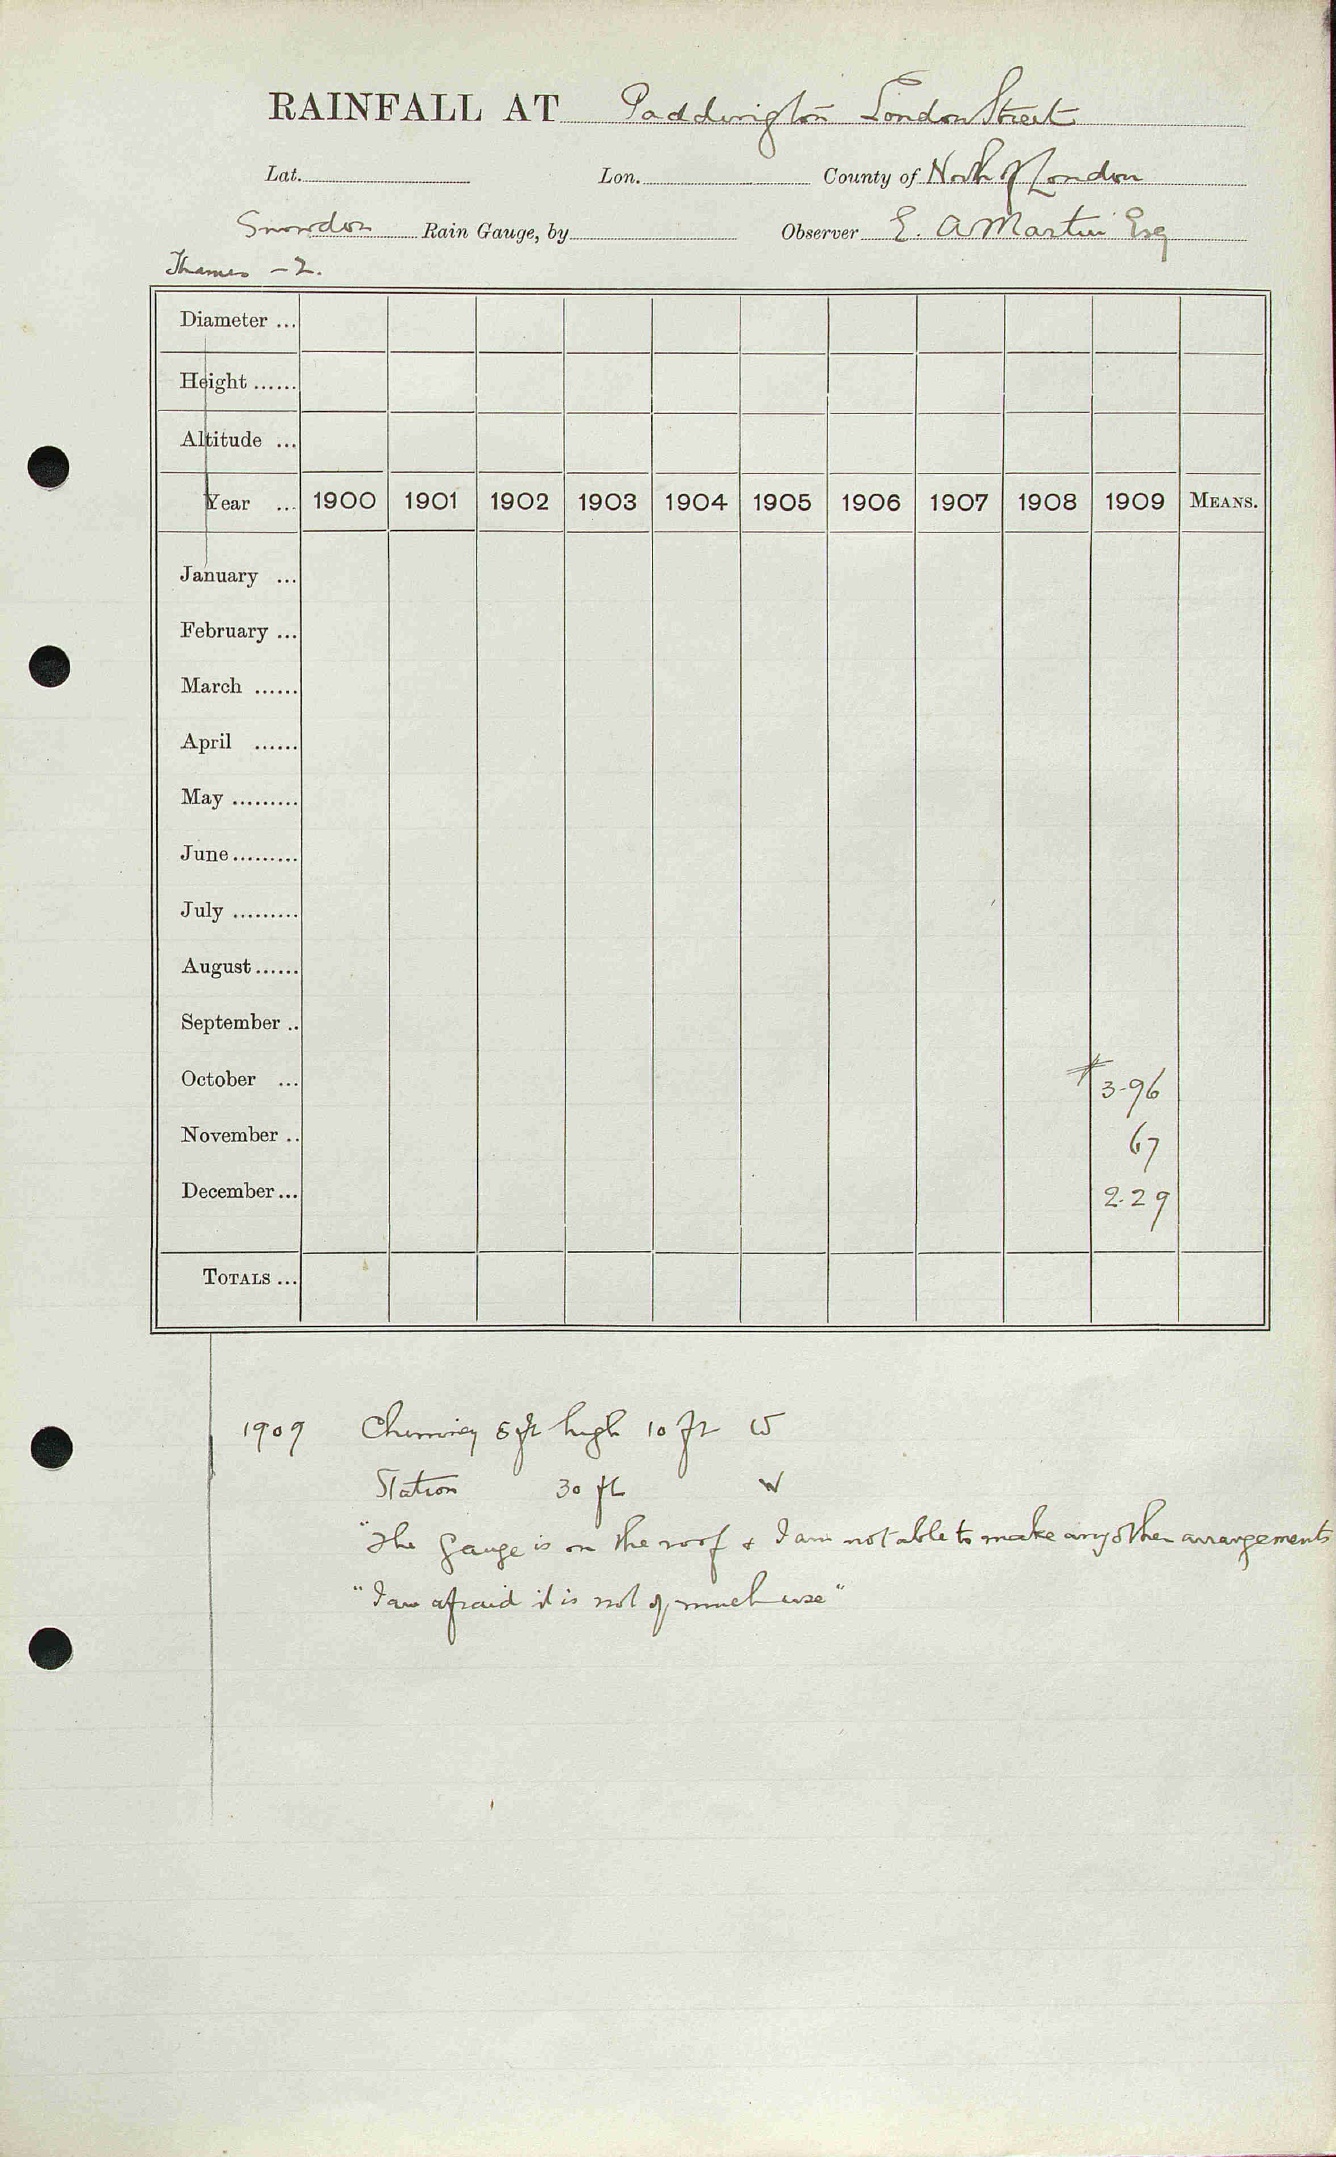 RAINFALL AT Paddington London Street
Lat. Lon. County of North of London
Snowdon Rain Gauge, by Observer E. A Martin Esq
Thames - 2.
Diameter ...
Height ......
Altitude ...
Year ... 1900 1901 1902 1903 1904 1905 1906 1907 1908 1909 MEANS.
January ...
February ...
March ......
April ......
May .........
June.........
July .........
August......
September ..
October ... 3.96
November .. 67
December... 2.29
TOTALS ...
1909 Chimney 5 ft high 10 ft W
Station 30 ft W
"The gauge is on the roof & I am not able to make any other arrangements
"I am afraid it is not of much use"